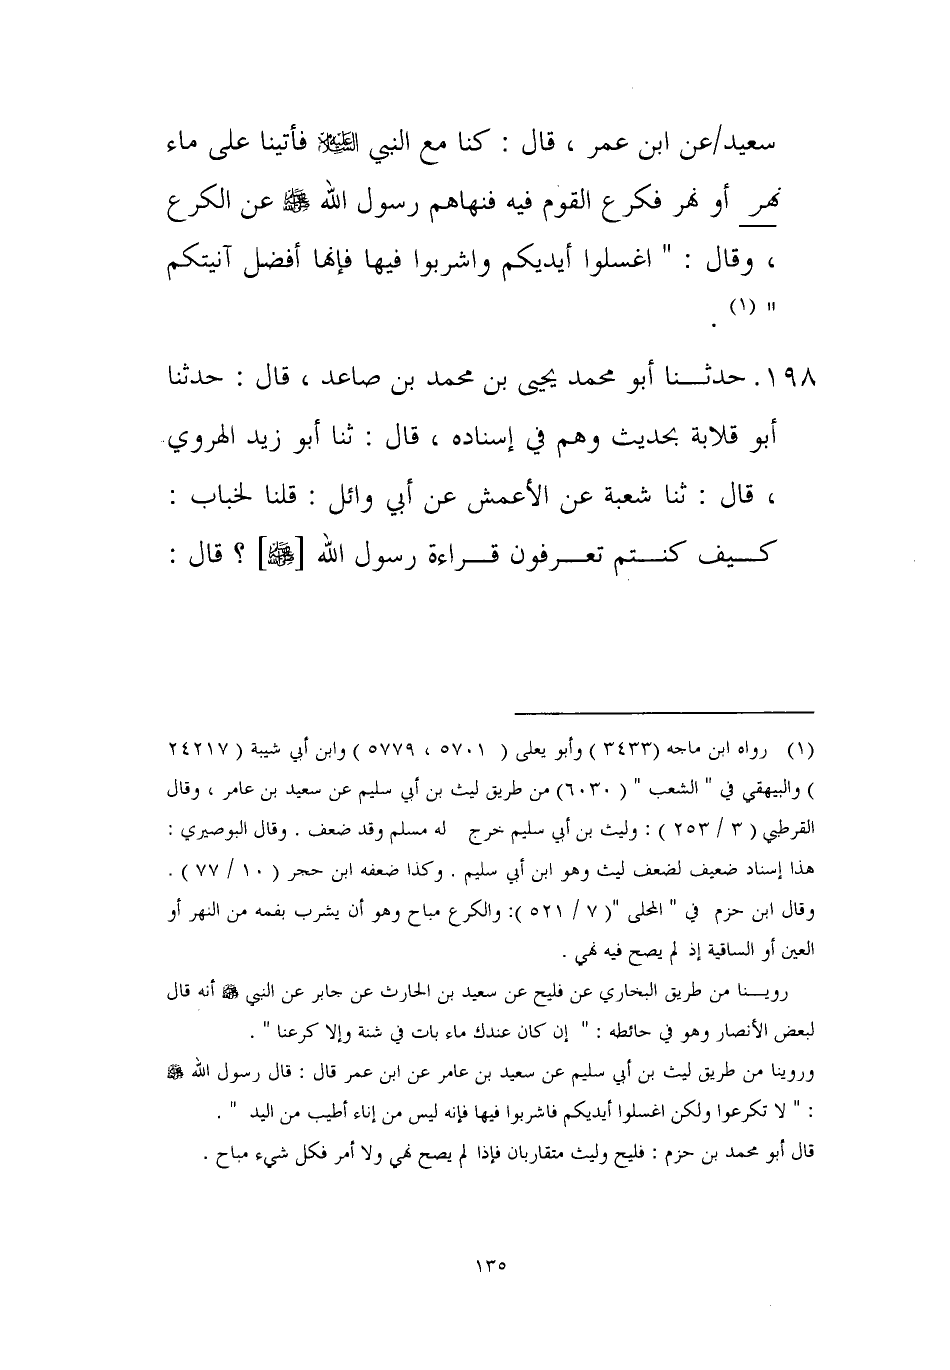 سعيد/عن ابن عمر ، قال : كنا مع النبي ﷺ فأتينا على ماء
نهر أو نهر فكرع القوم فيه فنهاهم رسول الله ﷺ عن الكرع
، وقال : " اغسلوا أيديكم واشربوا فيها فإنها أفضل آنيتكم
" (١) .
١٩٨. حدثـــنا أبو محمد يحيى بن محمد بن صاعد ، قال : حدثنا
أبو قلابة بحديث وهم في إسناده ، قال : ثنا أبو زيد الهروي
، قال : ثنا شعبة عن الأعمش عن أبي وائل : قلنا لخباب :
كـــيف كنـــتم تعـــرفون قـــراءة رسول الله [ﷺ] ؟ قال :
(١) رواه ابن ماجه (٣٤٣٣ ) وأبو يعلى ( ٥٧٠١ ، ٥٧٧٩ ) وابن أبي شيبة ( ٢٤٢١٧
) والبيهقي في " الشعب " ( ٦٠٣٠) من طريق ليث بن أبي سليم عن سعيد بن عامر ، وقال
القرطبي ( ٣ / ٢٥٣ ) : وليث بن أبي سليم خرج له مسلم وقد ضعف . وقال البوصيري :
هذا إسناد ضعيف لضعف ليث وهو ابن أبي سليم . وكذا ضعفه ابن حجر ( ١٠ / ٧٧ ) .
وقال ابن حزم في " المحلى "( ٧ / ٥٢١ ): والكرع مباح وهو أن يشرب بفمه من النهر أو
العين أو الساقية إذ لم يصح فيه نهي .
رويـــنا من طريق البخاري عن فليح عن سعيد بن الحارث عن جابر عن النبي ﷺ أنه قال
لبعض الأنصار وهو في حائطه : " إن كان عندك ماء بات في شنة وإلا كرعنا " .
وروينا من طريق ليث بن أبي سليم عن سعيد بن عامر عن ابن عمر قال : قال رسول الله ﷺ
: " لا تكرعوا ولكن اغسلوا أيديكم فاشربوا فيها فإنه ليس من إناء أطيب من اليد " .
قال أبو محمد بن حزم : فليح وليث متقاربان فإذا لم يصح نهي ولا أمر فكل شيء مباح .
١٣٥